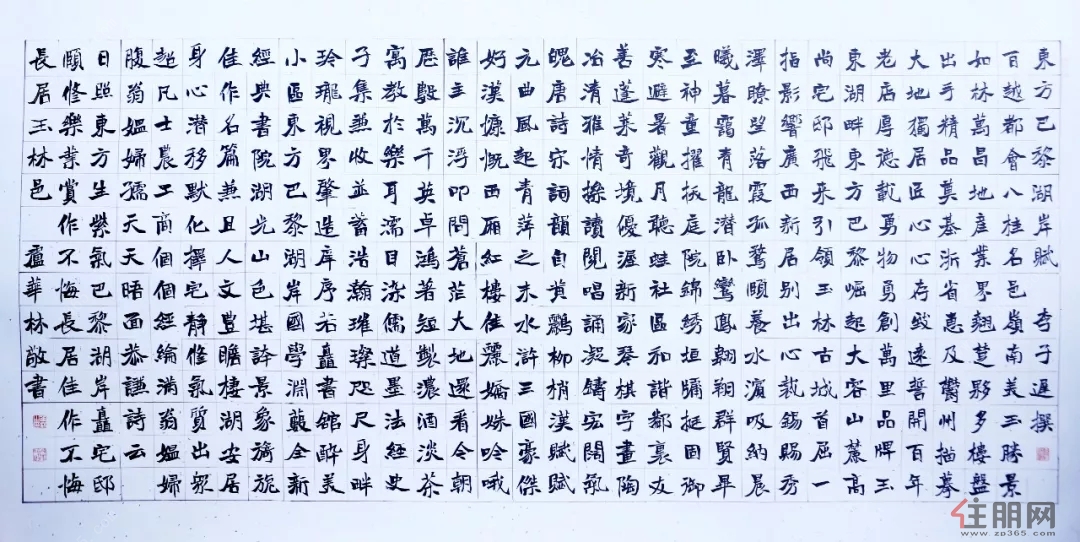 東方巴黎湖岸賦 李子遲撰
百越都會八桂名邑嶺南美玉勝景
如林萬昌地產業界翹楚夥多樓盤
出手精品奠基浙省惠及鬱州描摹
大地獨居匠心心存致遠誓開百年
老店厚德載勇物勇創萬里品牌玉
東湖畔東方巴黎崛起大容山麓高
尚宅邸飛來引領玉林古城首屈一
指影響廣西新居別出心裁錫賜秀
澤瞭望落霞孤鶩頤養水濱吸納晨
曦暮靄青龍潛臥鸞鳳翱翔群賢畢
至神童擢極庭院錦繡垣牖挺固御
寒避暑觀月聽蛙社區和諧都裏友
善蓬萊奇境優渥新家琴棋字畫陶
冶清雅情操讀閱唱誦凝鑄宏闊氣
魄唐詩宋詞韻自賞鸝柳梢漢賦賦
元曲風起青萍之末水滸三國豪傑
好漢慷慨西厢紅樓佳麗嬌姝吟哦
誰主沉浮叩問蒼茫大地還看今朝
歷毅萬千英卓鴻著短製濃酒淡茶
寓教於樂耳濡日染儒道墨法經史
子集無收並蓄浩瀚璀璨咫尺身畔
玲瓏視界肇造庫序若矗書館醉美
小區東方巴黎湖岸國學淵藪全新
經典書院湖光山色堪詩景象旖旎
佳作名篇兼且人文豐贍棲湖安居
身心潛移默化擇宅靜修氣質出眾
超凡士農工商個個經綸滿翁媼婦
腹翁媼婦孺天天晤面恭謙詩云
日照東方生紫氣巴黎湖岸矗宅邸
頤修樂業賞作不悔長居佳作不悔
長居玉林邑 盧華林敬書
住朋网
www.zp365.com